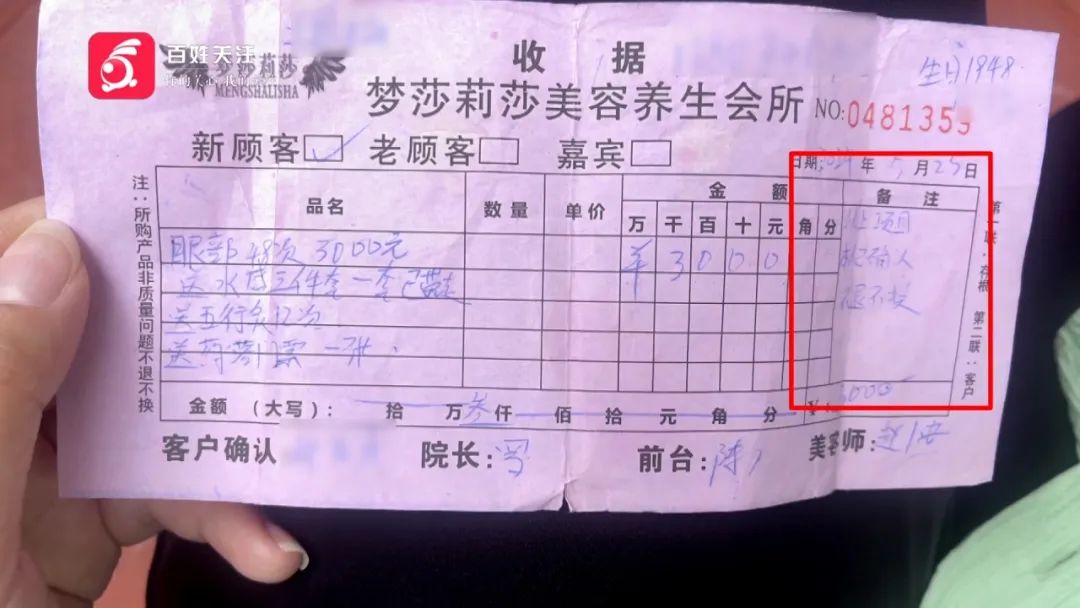 百姓关注
你的关心 我的关注
梦莎莉莎
MENGSHALISHA
收 据
生日1948.
梦莎莉莎美容养生会所
NO:0481355
新顾客 老顾客 嘉宾
日期: 年 5月25日
注:所购产品非质量问题不退不换
品名 数量 单价 金 额 备 注
万 千 百 十 元 角 分
眼部48次 3000元 3000
送水 三件套一套已带走
送五行灸12次
送 门票一张.
此项目
被确认
概不退
金额 (大写): 拾 万叁仟 佰 拾 元 角 分 ¥:3000
第一联:存根 第二联:客户
客户确认 院长: 前台:陈 美容师: